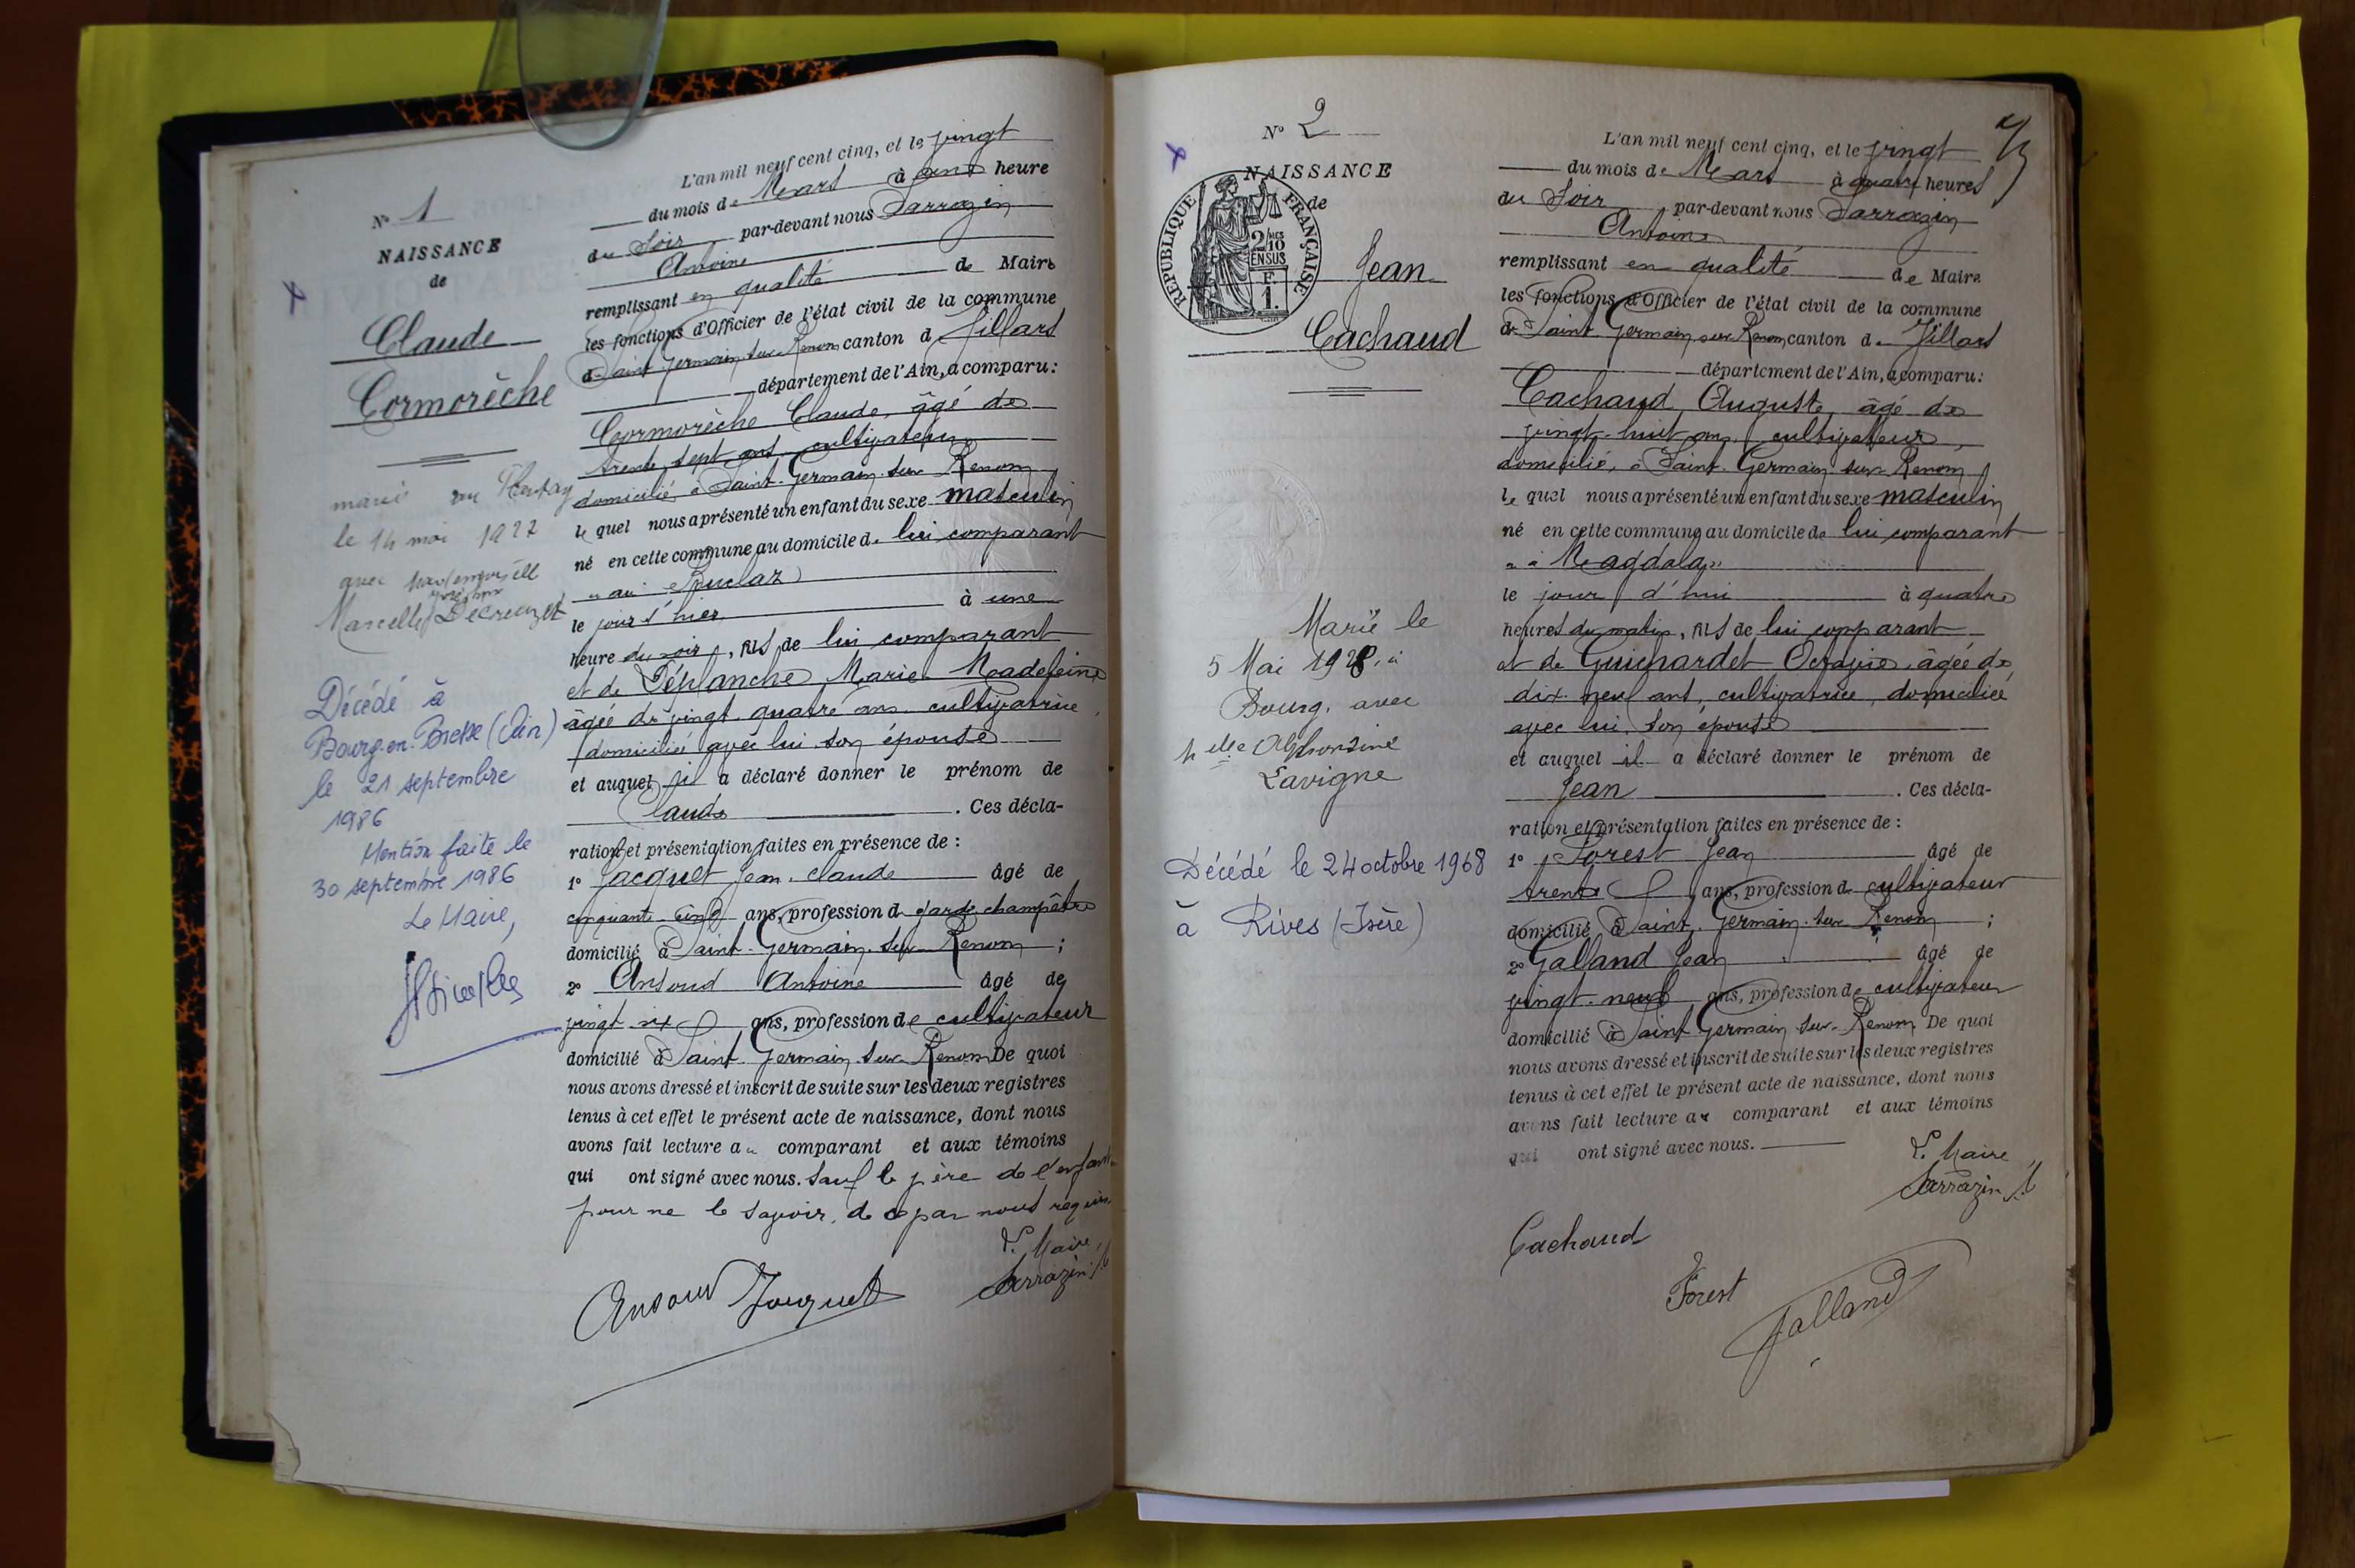 N° 1
NAISSANCE
de
Claude
Cormorèche
marié au
le 14 mai 1927
avec
Marcelle Decreuzet
Décédé à
Bourg-en-Bresse (Ain)
le 21 septembre
1986
Mention faite le
30 septembre 1986
Le Maire,
L'an mil neuf cent cinq, et le vingt
du mois de Mars à une heure
du Soir par-devant nous Sarrazin
Antoine
remplissant en qualité de Maire
les fonctions d'Officier de l'état civil de la commune
de Saint Germain sur Renom canton d Villars
département de l'Ain, a comparu:
Cormorèche Claude, âgé de
trente sept ans cultivateur
domicilié à Saint-Germain-sur Renom
le quel nous a présenté un enfant du sexe masculin
né en cette commune au domicile de lui comparant
au
le jour d'hier à une
heure du soir, fils de lui comparant
et de Déplanche Marie Madeleine
âgée de vingt-quatre ans cultivatrice,
domiciliée avec lui son épouse
et auquel il a déclaré donner le prénom de
Claude . Ces décla-
ration et présentation faites en présence de :
1° Jacquet Jean-Claude âgé de
cinquante cinq ans, profession de garde champêtre
domicilié à Saint-Germain-sur Renom ;
2° Ansoud Antoine âgé de
vingt six ans, profession de cultivateur
domicilié à Saint-Germain-sur Renom De quoi
nous avons dressé et inscrit de suite sur les deux registres
tenus à cet effet le présent acte de naissance, dont nous
avons fait lecture au comparant et aux témoins
qui ont signé avec nous. Sauf le père de l'enfant
pour ne le savoir, de ce par nous requis.
Le Maire,
Sarrazin A
Ansoud Jacquet
N° 2
NAISSANCE
de
RÉPUBLIQUE FRANÇAISE
2/10
EN SUS
F.
1.
Jean
Cachaud
Marié le
5 Mai 1928, à
Bourg, avec
Melle Alphonsine
Lavigne
Décédé le 24 octobre 1968
à Rives (Isère)
L'an mil neuf cent cinq, et le vingt
du mois de Mars à quatre heures
du Soir par-devant nous Sarrazin
Antoine
remplissant en qualité de Maire
les fonctions d'Officier de l'état civil de la commune
de Saint Germain sur Renom, canton de Villars
département de l'Ain, a comparu:
Cachaud Auguste, âgé de
vingt-huit ans, cultivateur,
domicilié, à Saint-Germain sur Renom
le quel nous a présenté un enfant du sexe masculin
né en cette commune au domicile de lui comparant
" à Magdala "
le jour d'hui à quatre
heures du matin, fils de lui comparant
et de Guichardet Octavie, âgée de
dix neuf ans, cultivatrice, domiciliée
avec lui, son épouse
et auquel il a déclaré donner le prénom de
Jean . Ces décla-
ration et présentation faites en présence de :
1° Forest Jean âgé de
trente ans, profession de cultivateur
domicilié à Saint-Germain-sur Renom ;
2° Galland Jean âgé de
vingt-neuf ans, profession de cultivateur
domicilié à Saint Germain sur-Renom De quoi
nous avons dressé et inscrit de suite sur les deux registres
tenus à cet effet le présent acte de naissance, dont nous
avons fait lecture au comparant et aux témoins
qui ont signé avec nous.
Le Maire
Sarrazin A
Cachaud
Forest
Galland